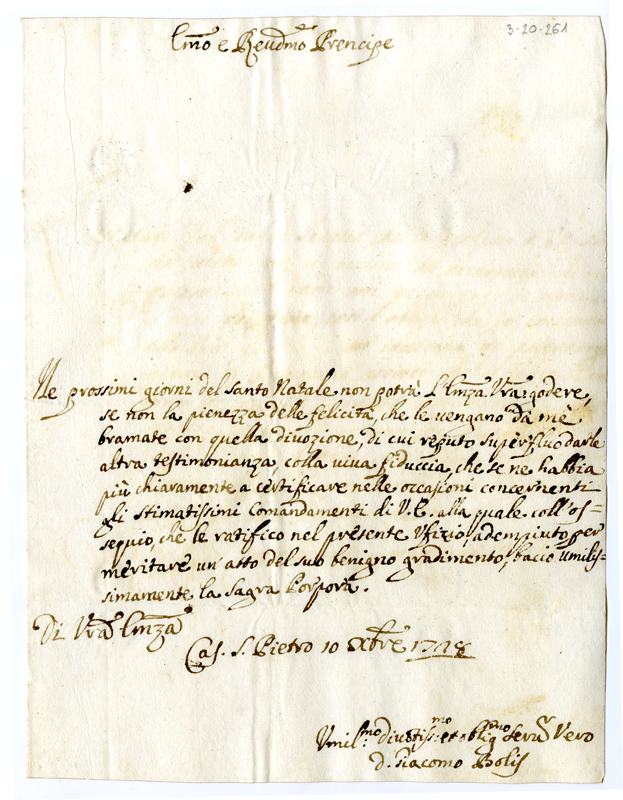 3-20-261
Emo e Reudmo Prencipe
Ne prossimi giorni del santo Natale non potrà L'Emza Vra godere,
se non la pienezza delle felicità, che le vengano da mè
bramate con quella diuozione, di cui reputo superfluo darle
altra testimonianza, colla viva fiduccia, che se ne habbia
più chiaramente a certificare nelle occasioni concernenti
gli stimatissimi Comandamenti di V.E. alla quale coll'os=
sequio, che le ratifico nel presente Vfizio, adempiuto per
meritare un'atto del suo benigno gradimento, bacio umilis=
simamente la sagra Porpora.
Di Vra Emza
Cas. S. Pietro 10 Xbre 1728
Vmil.mo diuotiss.mo et oblig.mo Seru.r Vero
d. Giacomo Bolis